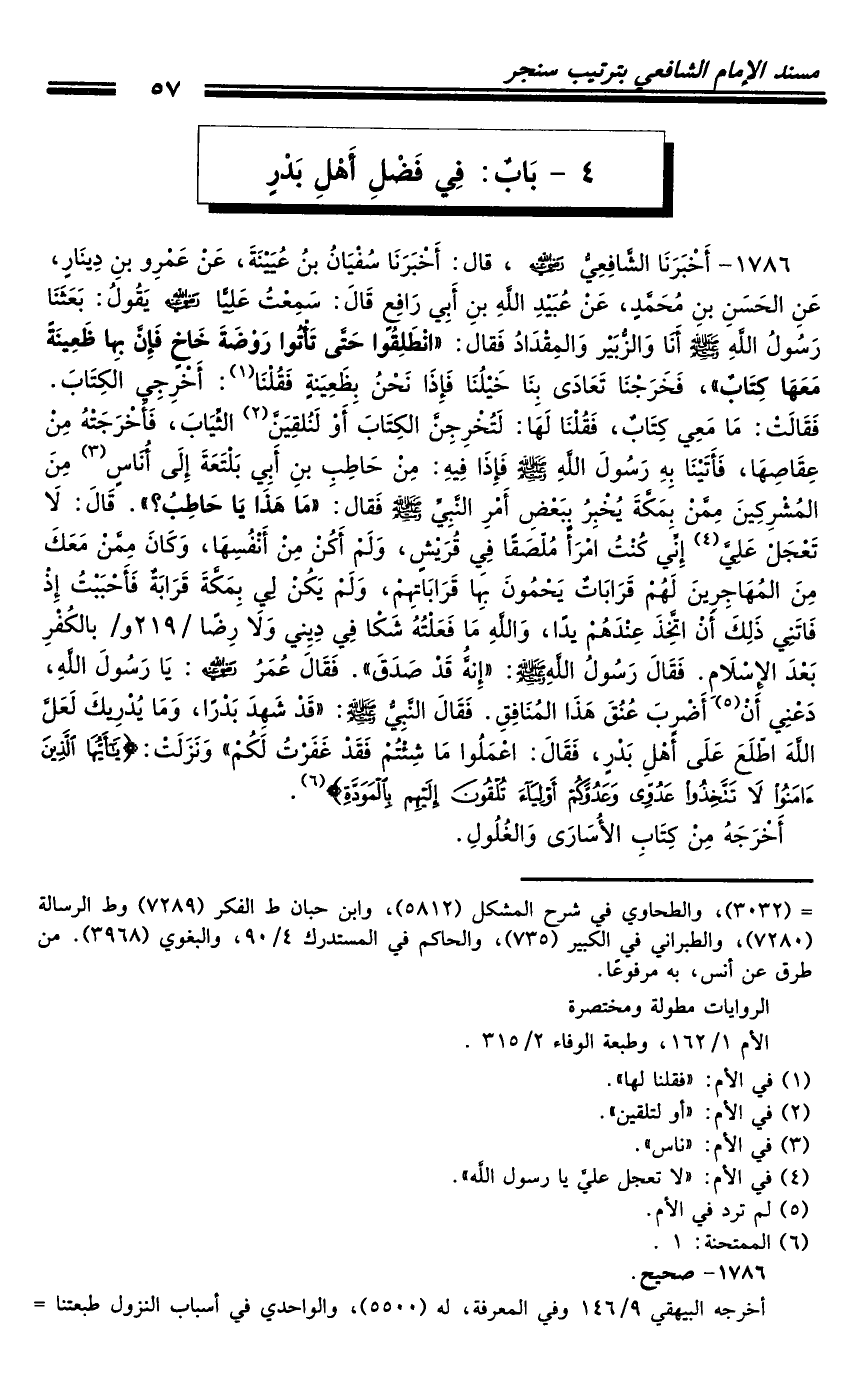 مسند الإمام الشافعي بترتيب سنجر
٥٧
٤ - بَابٌ: فِي فَضْلِ أَهْلِ بَدْرٍ
١٧٨٦- أَخْبَرَنَا الشَّافِعِيُّ رَضِيَ اللَّهُ عَنْهُ ، قال: أَخْبَرَنَا سُفْيَانُ بنُ عُيَيْنَةَ، عَنْ عَمْرِو بنِ دِينَارٍ،
عَنِ الحَسَنِ بنِ مُحَمَّدٍ، عَنْ عُبَيْدِ اللَّهِ بنِ أَبِي رَافِعٍ قَالَ: سَمِعْتُ عَلِيًّا رَضِيَ اللَّهُ عَنْهُ يَقُولُ: بَعَثَنَا
رَسُولُ اللَّهِ ﷺ أَنَا وَالزُّبَيْر وَالمِقْدَادُ فَقالَ: «انْطَلِقُوا حَتَّى تَأْتُوا رَوْضَةَ خَاخٍ فَإِنَّ بها ظَعِينَةً
مَعَهَا كِتَابٌ»، فَخَرَجْنَا تَعَادَى بِنَا خَيْلُنَا فَإِذَا نَحْنُ بِظَعِينَةٍ فَقُلْنَا(١): أَخْرِجِي الكِتَابَ.
فَقَالَتْ: مَا مَعِي كِتَابٌ، فَقُلْنَا لَهَا: لَتُخْرِجِنَّ الكِتَابَ أَوْ لَنُلقِيَنَّ(٢) الثِّيَابَ، فَأَخْرَجَتْهُ مِنْ
عِقَاصِهَا، فَأَتَيْنَا بِهِ رَسُولَ اللَّهِ ﷺ فَإِذَا فِيهِ: مِنْ حَاطِبِ بنِ أَبِي بَلْتَعَةَ إِلَى أُنَاسٍ(٣) مِنَ
المُشْرِكِينَ مِمَّنْ بِمَكَّةَ يُخْبِرُ بِبَعْضِ أَمْرِ النَّبِيِّ ﷺ فَقال: «مَا هَذَا يَا حَاطِبُ؟». قَالَ: لَا
تَعْجَلْ عَلِيَّ(٤) إِنِّي كُنْتُ امْرَأً مُلْصَقًا فِي قُرَيْشٍ، وَلَمْ أَكُنْ مِنْ أَنْفُسِهَا، وَكَانَ مِمَّنْ مَعَكَ
مِنَ المُهَاجِرِينَ لَهُمْ قَرَابَاتٌ يَحْمُونَ بِها قَرَابَاتِهِمْ، وَلَمْ يَكُنْ لِي بِمَكَّةَ قَرَابَةٌ فَأَحْبَبْتُ إِذْ
فَاتَنِي ذَلِكَ أَنْ اتَّخِذَ عِنْدَهُمْ يدًا، وَاللَّهِ مَا فَعَلْتُهُ شَكًا فِي دِينِي وَلَا رِضًا /٢١٩و/ بالكُفْرِ
بَعْدَ الإِسْلَامِ. فَقَالَ رَسُولُ اللَّهِ ﷺ: «إِنَّهُ قَدْ صَدَقَ». فَقَالَ عُمَرُ رَضِيَ اللَّهُ عَنْهُ : يَا رَسُولَ اللَّهِ،
دَعْنِي أَنْ(٥) أَضْرِبَ عُنُقَ هَذَا المُنَافِقِ. فَقَالَ النَّبِيُّ ﷺ: «قَدْ شَهِدَ بَدْرًا، وَمَا يُدْرِيكَ لَعَلَّ
اللَّهَ اطَّلَعَ عَلَى أَهْلِ بَدْرٍ، فَقَالَ: اعْمَلُوا مَا شِئْتُمْ فَقَدْ غَفَرْتُ لَكُمْ» وَنَزَلَتْ: ﴿يَـٰٓأَيُّهَا ٱلَّذِينَ
ءَامَنُواْ لَا تَتَّخِذُواْ عَدُوِّى وَعَدُوَّكُمْ أَوْلِيَآءَ تُلْقُونَ إِلَيْهِم بِٱلْمَوَدَّةِ﴾(٦).
أَخْرَجَهُ مِنْ كِتَابِ الأُسَارَى وَالغُلُولِ.
= (٣٠٣٢)، والطحاوي في شرح المشكل (٥٨١٢)، وابن حبان ط الفكر (٧٢٨٩) وط الرسالة
(٧٢٨٠)، والطبراني في الكبير (٧٣٥)، والحاكم في المستدرك ٩٠/٤، والبغوي (٣٩٦٨). من
طرق عن أنس، به مرفوعًا.
الروايات مطولة ومختصرة
الأم ١٦٢/١، وطبعة الوفاء ٣١٥/٢ .
(١) في الأم: «فقلنا لها».
(٢) في الأم: «أو لتلقين».
(٣) في الأم: «ناس».
(٤) في الأم: «لا تعجل عليَّ يا رسول اللَّه».
(٥) لم ترد في الأم.
(٦) الممتحنة: ١ .
١٧٨٦- صحيح.
أخرجه البيهقي ١٤٦/٩ وفي المعرفة، له (٥٥٠٠)، والواحدي في أسباب النزول طبعتنا =